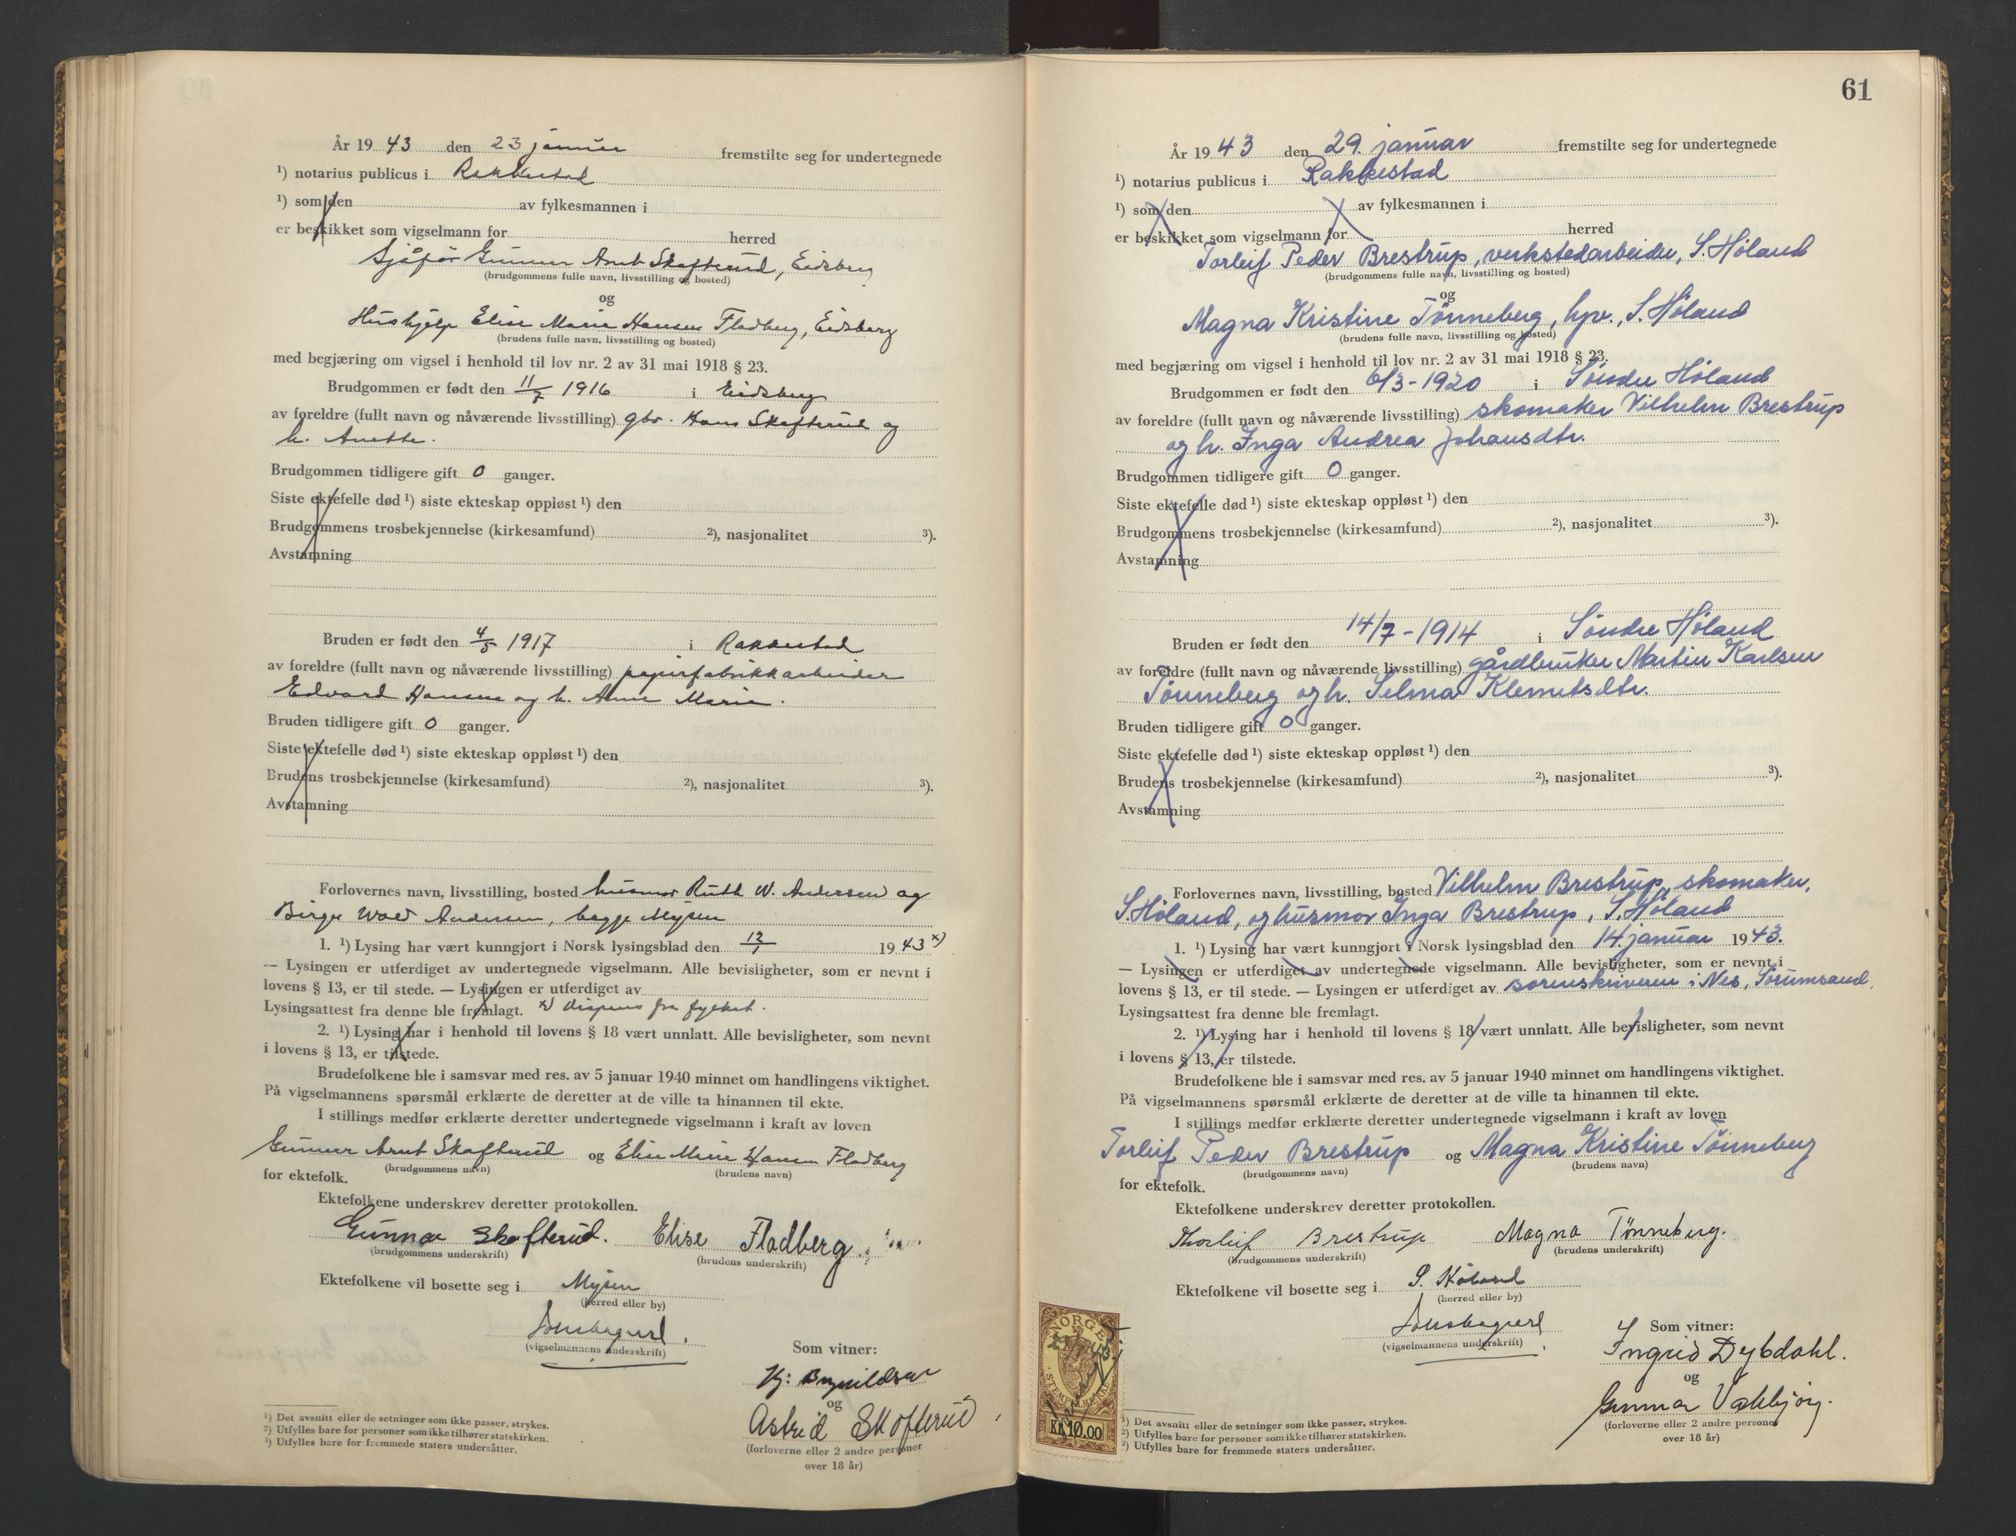 År 1943 den 23 januar fremstilte seg for undertegnede
¹) notarius publicus i Rakkestad
¹) som den av fylkesmannen i
er beskikket som vigselmann for herred
Sjåfør Gunnar Arnt Skofterud, Eidsberg
(brudgommens fulle navn, livsstilling og bosted)
og
Hushjelp Elise Marie Hansen Fladberg, Eidsberg
(brudens fulle navn, livsstilling og bosted)
med begjæring om vigsel i henhold til lov nr. 2 av 31 mai 1918 § 23.
Brudgommen er født den 11/7 1916 i Eidsberg
av foreldre (fullt navn og nåværende livsstilling) gbr. Hans Skofterud og
h. Anette.
Brudgommen tidligere gift 0 ganger.
Siste ektefelle død ¹) siste ekteskap oppløst ¹) den
Brudgommens trosbekjennelse (kirkesamfund) ²), nasjonalitet ³).
Avstamning
Bruden er født den 4/5 1917 i Rakkestad
av foreldre (fullt navn og nåværende livsstilling) papirfabrikkarbeider
Edvard Hansen og h. Anne Marie.
Bruden tidligere gift 0 ganger.
Siste ektefelle død ¹) siste ekteskap oppløst ¹) den
Brudens trosbekjennelse (kirkesamfund) ²), nasjonalitet ³).
Avstamning
Forlovernes navn, livsstilling, bosted husmor Ruth W. Andersen og
Birger Wold Andersen, begge Mysen
1. ¹) Lysing har vært kunngjort i Norsk lysingsblad den 12/1 1943 x)
— Lysingen er utferdiget av undertegnede vigselmann. Alle bevisligheter, som er nevnt i
lovens § 13, er til stede. — Lysingen er utferdiget av
Lysingsattest fra denne ble fremlagt. x) Dispens fra fylket.
2. ¹) Lysing har i henhold til lovens § 18 vært unnlatt. Alle bevisligheter, som nevnt
i lovens § 13, er tilstede.
Brudefolkene ble i samsvar med res. av 5 januar 1940 minnet om handlingens viktighet.
På vigselmannens spørsmål erklærte de deretter at de ville ta hinannen til ekte.
I stillings medfør erklærte deretter undertegnede vigselmann i kraft av loven
Gunnar Arnt Skofterud og Elise Marie Hansen Fladberg
(brudgommens navn) (brudens navn)
for ektefolk.
Ektefolkene underskrev deretter protokollen.
Gunnar Skofterud. Elise Fladberg.
(brudgommens underskrift) (brudens underskrift)
Ektefolkene vil bosette seg i Mysen
(herred eller by)
(vigselmannens underskrift)
Som vitner:
og
Astrid Skofterud
(forloverne eller 2 andre personer
over 18 år)
¹) Det avsnitt eller de setninger som ikke passer, strykes.
²) Utfylles bare for personer som ikke tilhører statskirken.
³) Utfylles bare for fremmede staters undersåtter.
61
År 1943 den 29. januar fremstilte seg for undertegnede
¹) notarius publicus i Rakkestad
¹) som den av fylkesmannen i
er beskikket som vigselmann for herred
Torleif Peder Brestrup, verkstedarbeider, S. Høland
(brudgommens fulle navn, livsstilling og bosted)
og
Magna Kristine Tønneberg, hjv., S. Høland
(brudens fulle navn, livsstilling og bosted)
med begjæring om vigsel i henhold til lov nr. 2 av 31 mai 1918 § 23.
Brudgommen er født den 6/3-1920 i Søndre Høland
av foreldre (fullt navn og nåværende livsstilling) skomaker Vilhelm Brestrup
og h. Inga Andrea Johansdtr.
Brudgommen tidligere gift 0 ganger.
Siste ektefelle død ¹) siste ekteskap oppløst ¹) den
Brudgommens trosbekjennelse (kirkesamfund) ²), nasjonalitet ³).
Avstamning
Bruden er født den 14/7-1914 i Søndre Høland
av foreldre (fullt navn og nåværende livsstilling) gårdbruker Martin Karlsen
Tønneberg og h. Selma Klemetsdtr.
Bruden tidligere gift 0 ganger.
Siste ektefelle død ¹) siste ekteskap oppløst ¹) den
Brudens trosbekjennelse (kirkesamfund) ²), nasjonalitet ³).
Avstamning
Forlovernes navn, livsstilling, bosted Vilhelm Brestrup, skomaker,
S. Høland, og husmor Inga Brestrup, S. Høland
1. ¹) Lysing har vært kunngjort i Norsk lysingsblad den 14 januar 1943.
— Lysingen er utferdiget av undertegnede vigselmann. Alle bevisligheter, som er nevnt i
lovens § 13, er til stede. — Lysingen er utferdiget av sorenskriveren i Nes, Sørumsand.
Lysingsattest fra denne ble fremlagt.
2. ¹) Lysing har i henhold til lovens § 18 vært unnlatt. Alle bevisligheter, som nevnt
i lovens § 13, er tilstede.
Brudefolkene ble i samsvar med res. av 5 januar 1940 minnet om handlingens viktighet.
På vigselmannens spørsmål erklærte de deretter at de ville ta hinannen til ekte.
I stillings medfør erklærte deretter undertegnede vigselmann i kraft av loven
Torleif Peder Brestrup og Magna Kristine Tønneberg
(brudgommens navn) (brudens navn)
for ektefolk.
Ektefolkene underskrev deretter protokollen.
Thorleif Brestrup Magna Tønneberg.
(brudgommens underskrift) (brudens underskrift)
Ektefolkene vil bosette seg i S. Høland
(herred eller by)
(vigselmannens underskrift)
Som vitner:
Ingrid Dybdahl.
og
Gunnar
(forloverne eller 2 andre personer
over 18 år)
NORGE
STEMPELMERKE
KR. 10.00
¹) Det avsnitt eller de setninger som ikke passer, strykes.
²) Utfylles bare for personer som ikke tilhører statskirken.
³) Utfylles bare for fremmede staters undersåtter.